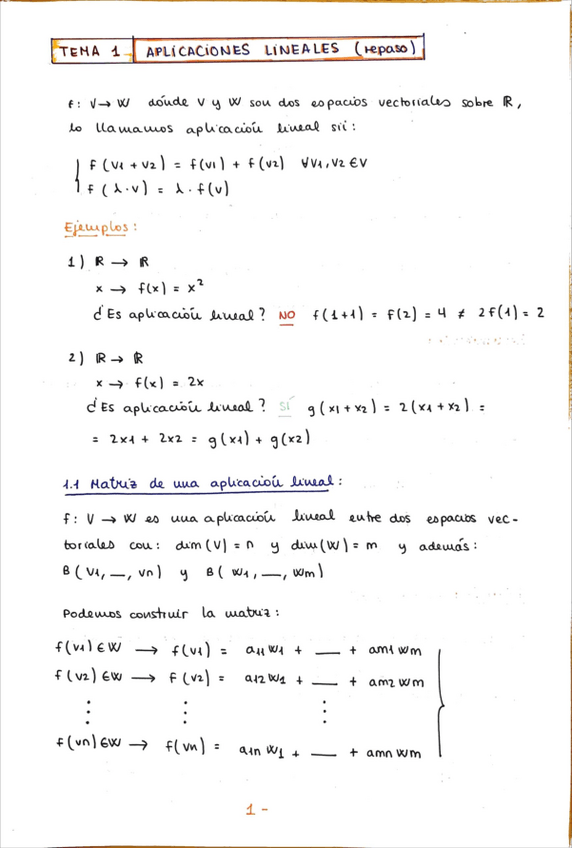 TEMA 1 APLICACIONES LINEALES (repaso)
f: V → W dónde V y W son dos espacios vectoriales sobre ℝ,
lo llamamos aplicación lineal sii:
f(v1 + v2) = f(v1) + f(v2) ∀v1, v2 ∈ V
f(λ·v) = λ·f(v)
Ejemplos:
1) ℝ → ℝ
x → f(x) = x²
¿Es aplicación lineal? NO f(1+1) = f(2) = 4 ≠ 2f(1) = 2
2) ℝ → ℝ
x → f(x) = 2x
¿Es aplicación lineal? SÍ g(x1 + x2) = 2(x1 + x2) =
= 2x1 + 2x2 = g(x1) + g(x2)
1.1 Matriz de una aplicación lineal:
f: V → W es una aplicación lineal entre dos espacios vec-
toriales con: dim(V) = n y dim(W) = m y además:
B(v1, __, vn) y B(w1, __, wm)
Podemos construir la matriz:
f(v1) ∈ W → f(v1) = a11 w1 + __ + am1 wm
f(v2) ∈ W → f(v2) = a12 w1 + __ + am2 wm
⋮ ⋮ ⋮
f(vn) ∈ W → f(vn) = a1n w1 + __ + amn wm
1 -